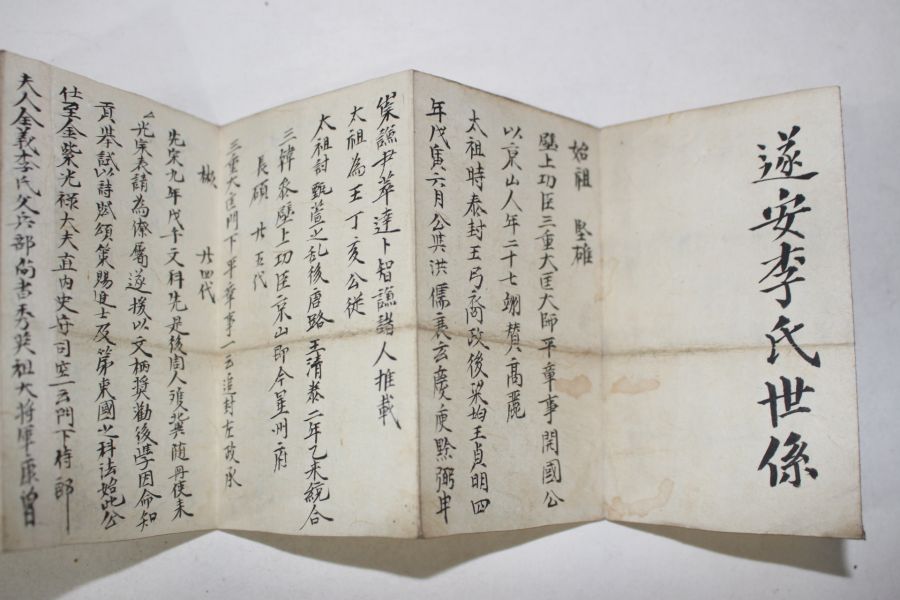 遂安李氏世係
始祖 堅雄
壁上功臣三重大匡大師平章事開國公
以京山人年二十七翊贊高麗
太祖時泰封王弓裔政後梁均王貞明四
年戊寅六月公與洪儒裵玄慶庾黔弼申
崇謙尹莘達卜智謙諸人推載
太祖為王丁亥公從
太祖討甄萱之乱後唐路王清泰二年乙未統合
三韓叅壁上功臣京山即今星州府
長碩 廿五代
三重大匡門下平章事一云追封左政丞
彬 廿四代
光宗九年戊午文科先是後周人双冀隨冊使来
光宗奏請為僚屬遂援以文柄奬勸後學因命知
貢举試以詩賦頌策賜進士及第東國之科法始此公
仕至金紫光禄大夫直内史守司空一云門下侍郎
夫人全義李氏父兵部尚書秀英祖大将軍康曽